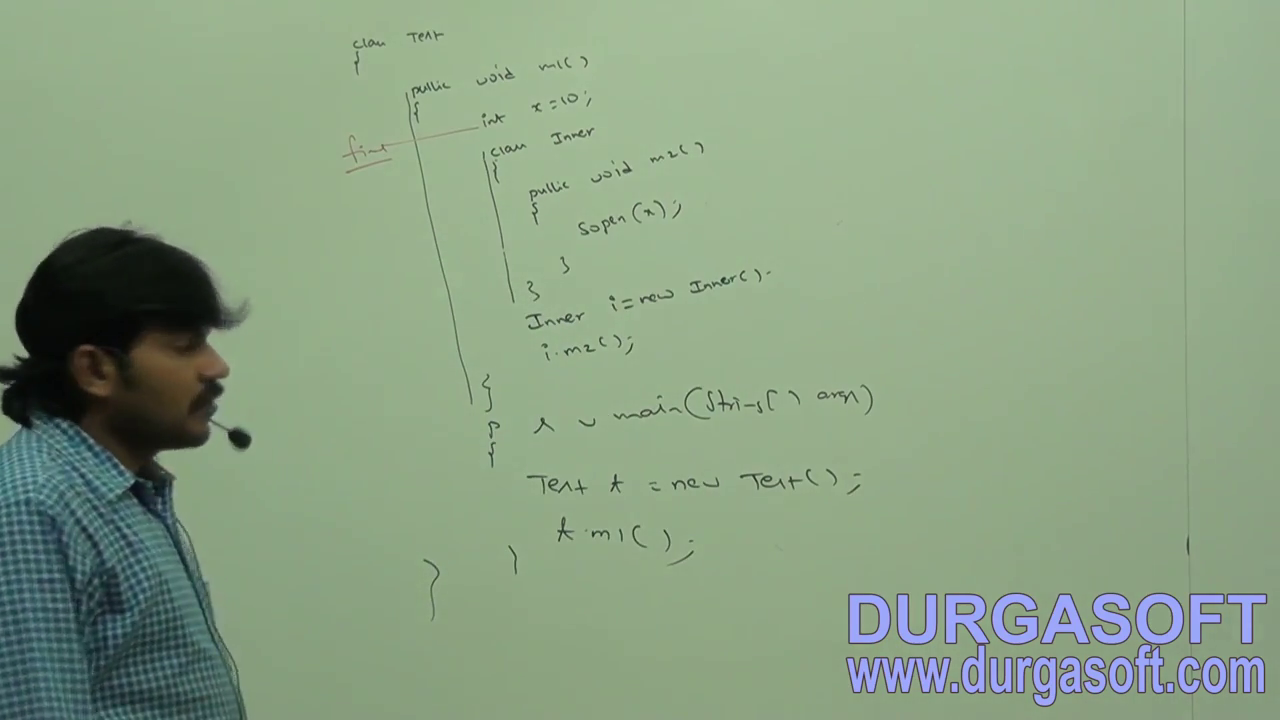 class Test
{
public void m1()
{
int x=10;
final
class Inner
{
public void m2()
{
Sopen(x);
}
}
Inner i=new Inner().
i.m2();
}
p s v main(String() args)
{
Test t = new Test();
t.m1();
}
}
DURGASOFT
www.durgasoft.com